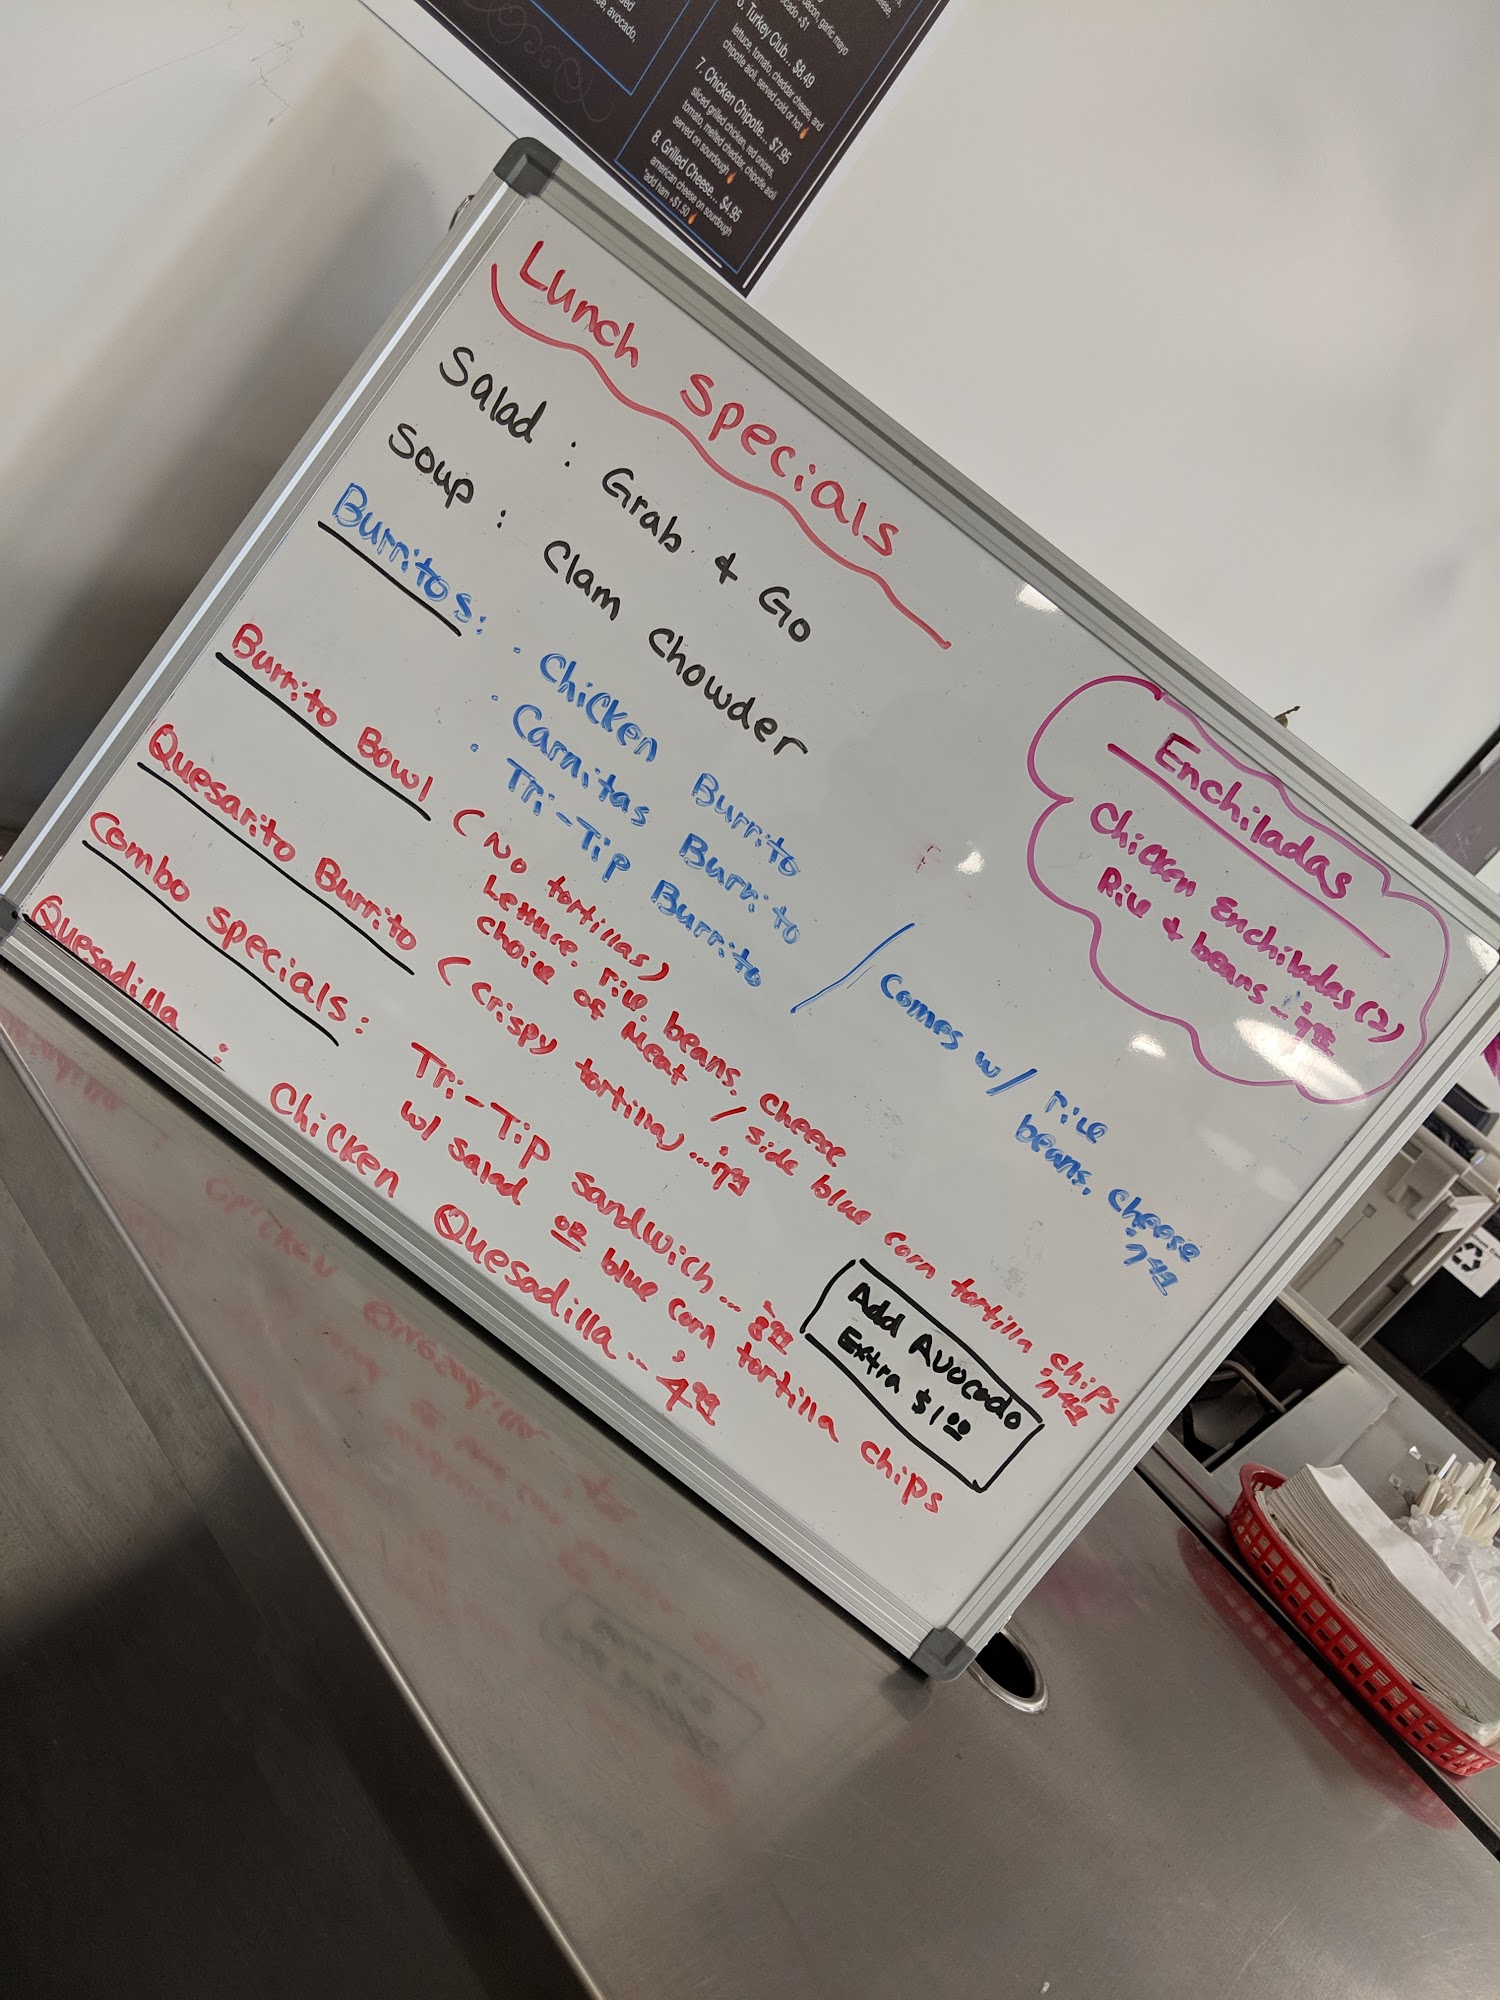 avocado,
bacon, garlic mayo
6. Turkey Club... $8.49
lettuce, tomato, cheddar cheese, and
chipotle aioli, served cold or hot
7. Chicken Chipotle... $7.95
sliced grilled chicken, red onions,
tomato, melted cheddar, chipotle aioli
served on sourdough
8. Grilled Cheese... $4.95
american cheese on sourdough
*add ham +$1.50
Lunch Specials
Salad : Grab & Go
Soup : Clam Chowder
Burritos: · Chicken Burrito
· Carnitas Burrito / Comes w/ rice
· Tri-Tip Burrito beans, cheese
7.49
Enchiladas
Chicken Enchiladas (2)
Rice & beans
Burrito Bowl (No tortillas)
Lettuce, rice, beans, cheese
choice of Meat / side blue corn tortilla chips
7.49
Quesarito Burrito (crispy tortilla)...
Combo Specials: Tri-Tip Sandwich... 8.99
w/ salad or blue corn tortilla chips
Quesadilla : Chicken Quesadilla... 4.99
Add Avocado
Extra $1.00